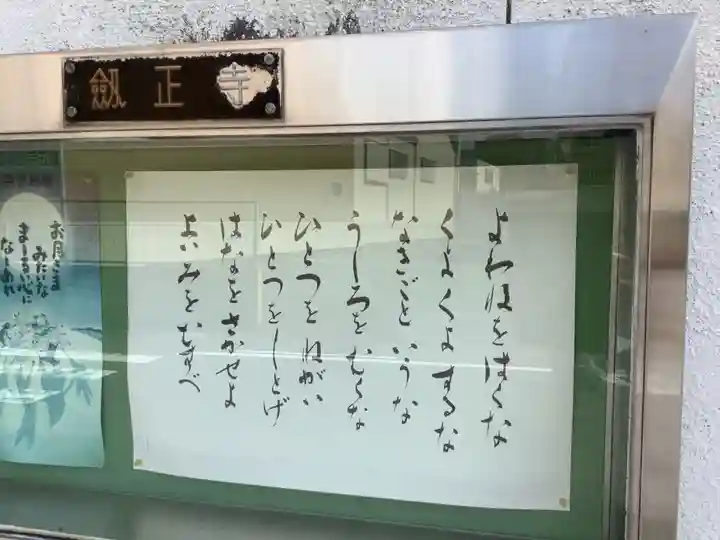 劔正寺
よわねをはくな
くよくよするな
なきごというな
うしろをむくな
ひとつをねがい
ひとつをしとげ
はなをさかせよ
よいみをむすべ
お月さま
みたいな
まあるい心に
なあれ